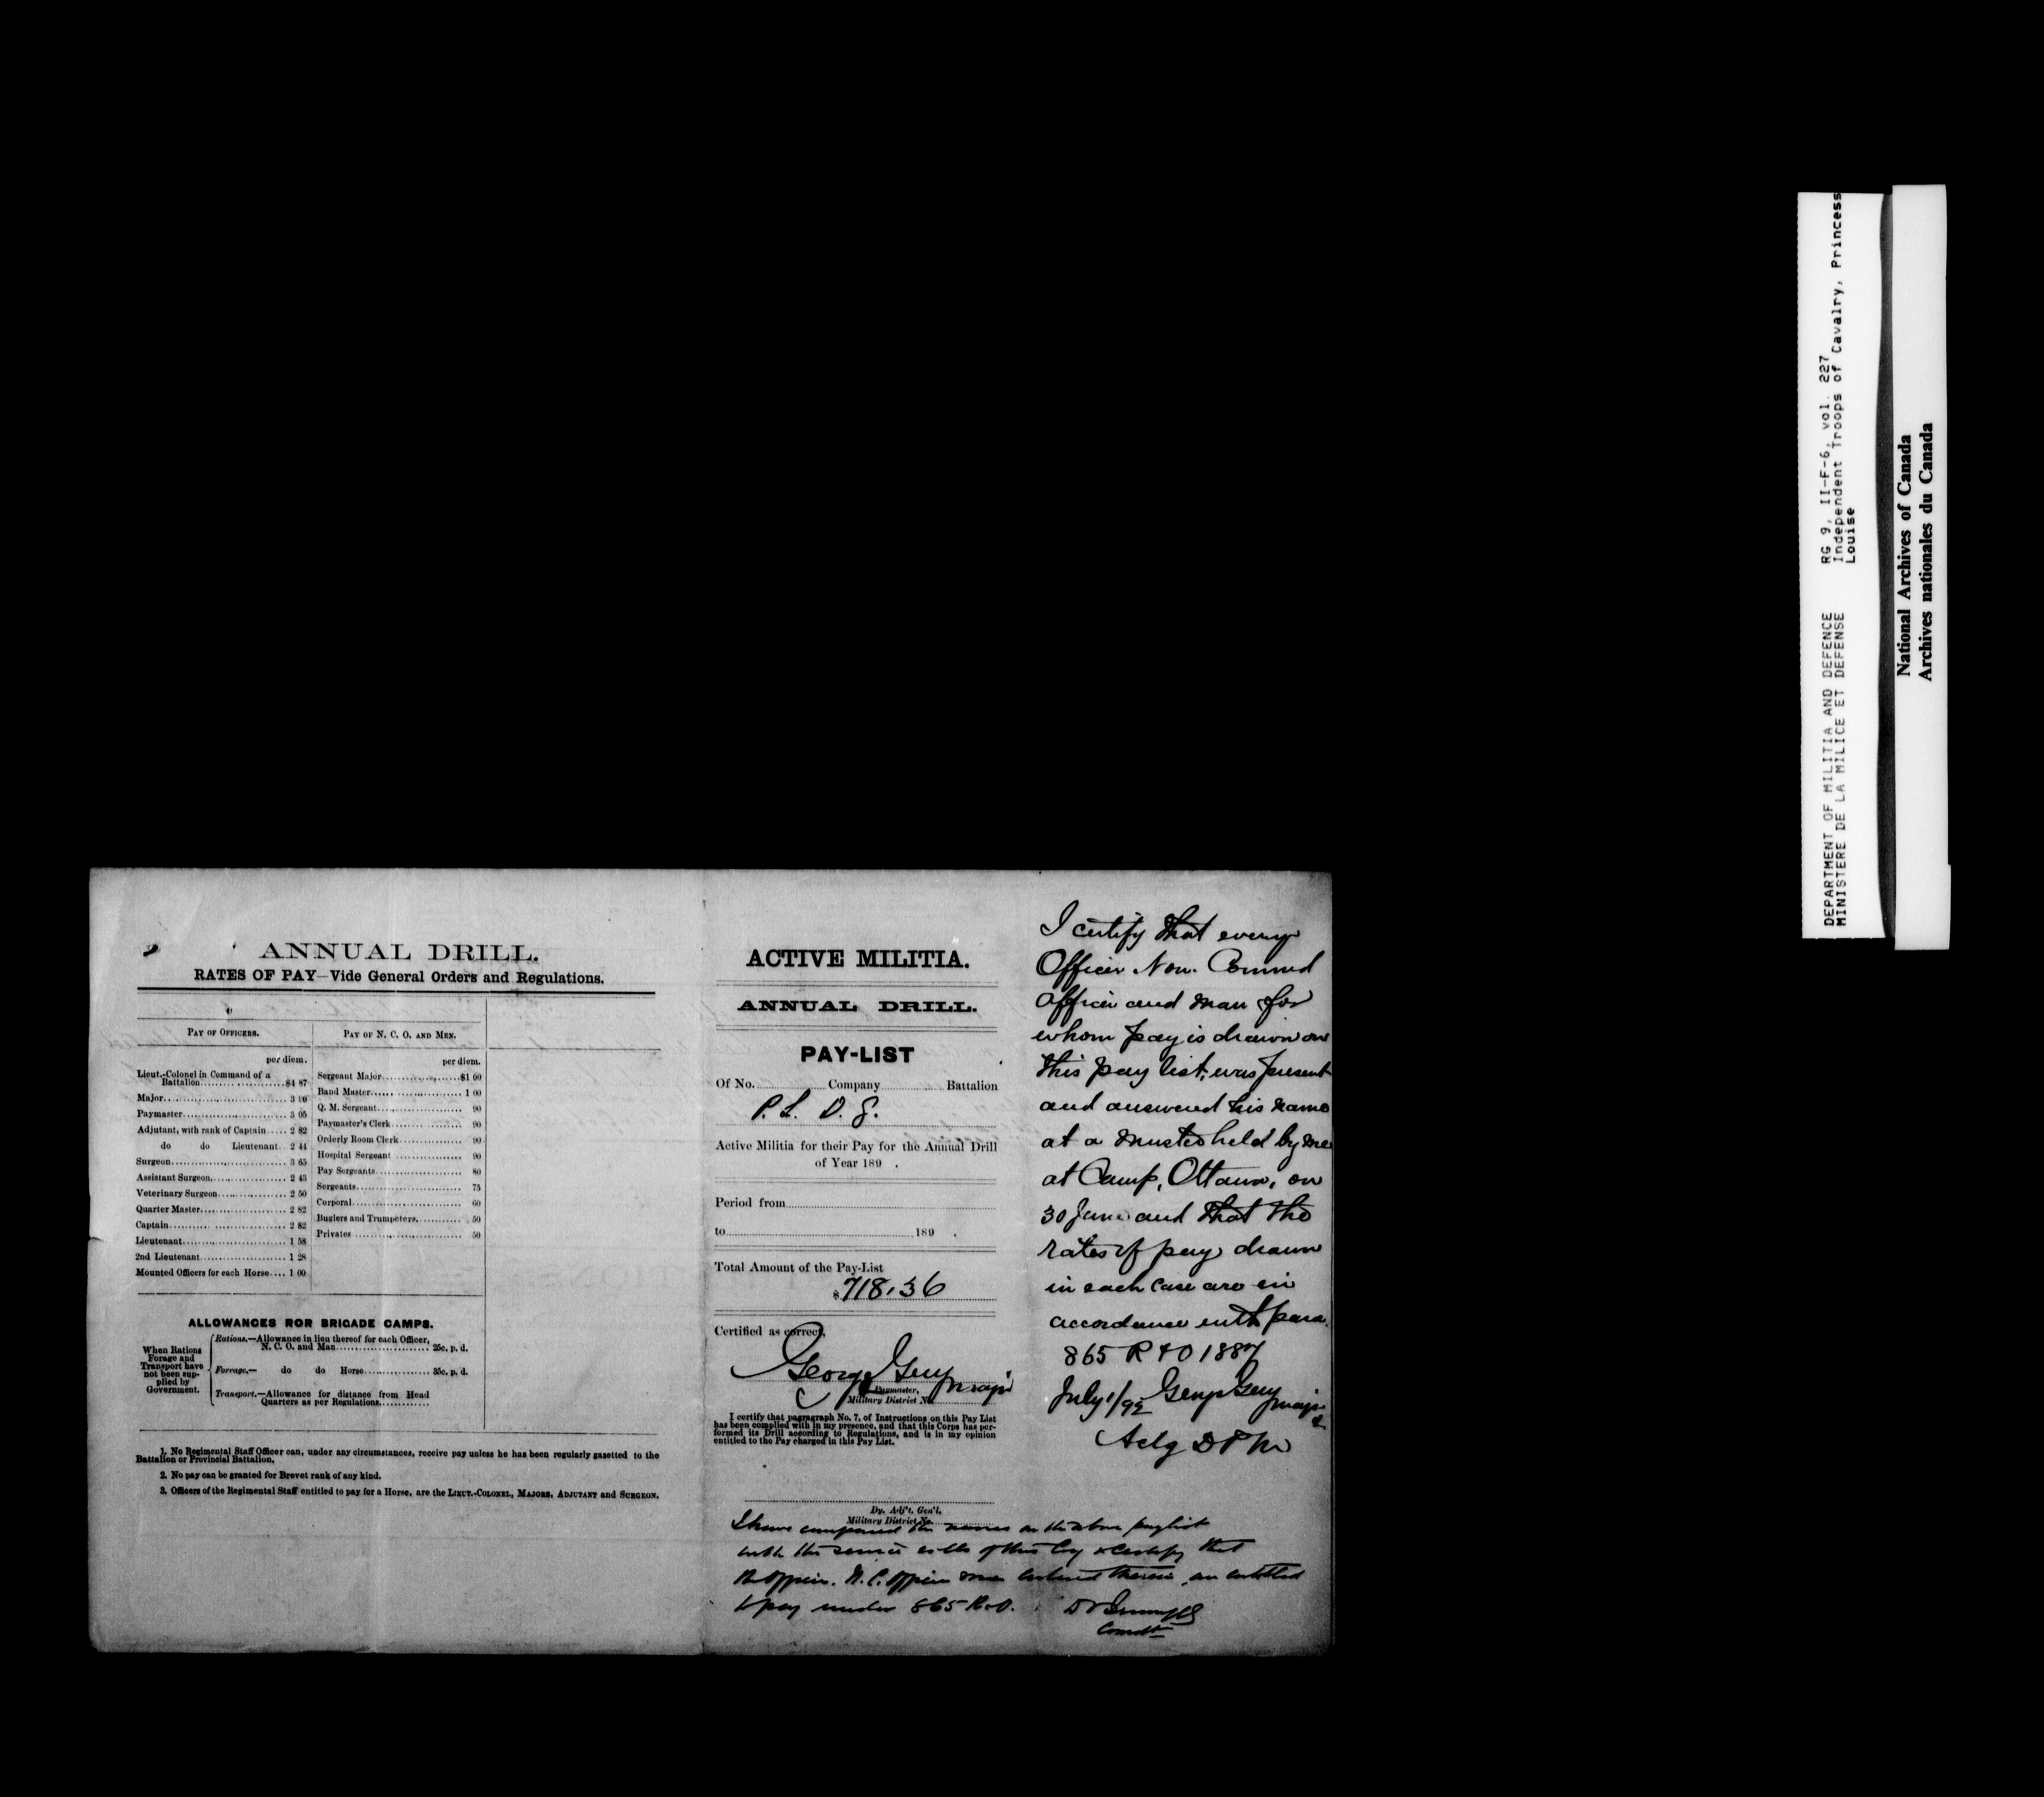 ANNUAL DRILL.
RATES OF PAY—Vide General Orders and Regulations.
PAY OF OFFICERS.
per diem.
Lieut.-Colonel in Command of a
Battalion $4 87
Major 3 90
Paymaster 3 05
Adjutant, with rank of Captain 2 82
do do Lieutenant 2 44
Surgeon 3 65
Assistant Surgeon 2 43
Veterinary Surgeon 2 50
Quarter Master 2 82
Captain 2 82
Lieutenant 1 58
2nd Lieutenant 1 28
Mounted Officers for each Horse 1 00
PAY OF N. C. O. AND MEN.
per diem.
Sergeant Major $1 00
Band Master 1 00
Q. M. Sergeant 90
Paymaster's Clerk 90
Orderly Room Clerk 90
Hospital Sergeant 90
Pay Sergeants 80
Sergeants 75
Corporal 60
Buglers and Trumpeters 50
Privates 50
ALLOWANCES ROR BRIGADE CAMPS.
When Rations
Forage and
Transport have
not been sup-
plied by
Government.
Rations.—Allowance in lieu thereof for each Officer,
N. C. O. and Man 25c. p. d.
Forrage.— do do Horse 35c. p. d.
Transport.—Allowance for distance from Head
Quarters as per Regulations
1. No Regimental Staff Officer can, under any circumstances, receive pay unless he has been regularly gazetted to the
Battalion or Provincial Battalion.
2. No pay can be granted for Brevet rank of any kind.
3. Officers of the Regimental Staff entitled to pay for a Horse, are the LIEUT.-COLONEL, MAJORS, ADJUTANT and SURGEON.
ACTIVE MILITIA.
ANNUAL DRILL.
PAY-LIST
Of No. Company Battalion
P. L. D. G.
Active Militia for their Pay for the Annual Drill
of Year 189 .
Period from
to 189 .
Total Amount of the Pay-List
$ 718.36
Certified as correct,
George Guy Major
Paymaster,
Military District No.
I certify that paragraph No. 7, of Instructions on this Pay List
has been complied with in my presence, and that this Corps has per-
formed its Drill according to Regulations, and is in my opinion
entitled to the Pay charged in this Pay List.
Dy. Adj't. Gen'l.
Military District No.
I have compared the names on the above paylist
with the service rolls of this Coy & certify that
the officers. N. C. officers men entered therein, are entitled
to pay under 865 R & O.
Comdt
I certify that every
Officer Non. Commd
officer and man for
whom pay is drawn on
this pay list, was present
and answered his name
at a muster held by me
at Camp, Ottawa, on
30 June and that the
rates of pay drawn
in each case are in
accordance with para.
865 R & O 1887
July 1/92 George Guy
Major
Actg D P M
DEPARTMENT OF MILITIA AND DEFENCE
MINISTERE DE LA MILICE ET DEFENSE
RG 9, II-F-6, vol. 227
Independent Troops of Cavalry, Princess
Louise
National Archives of Canada
Archives nationales du Canada